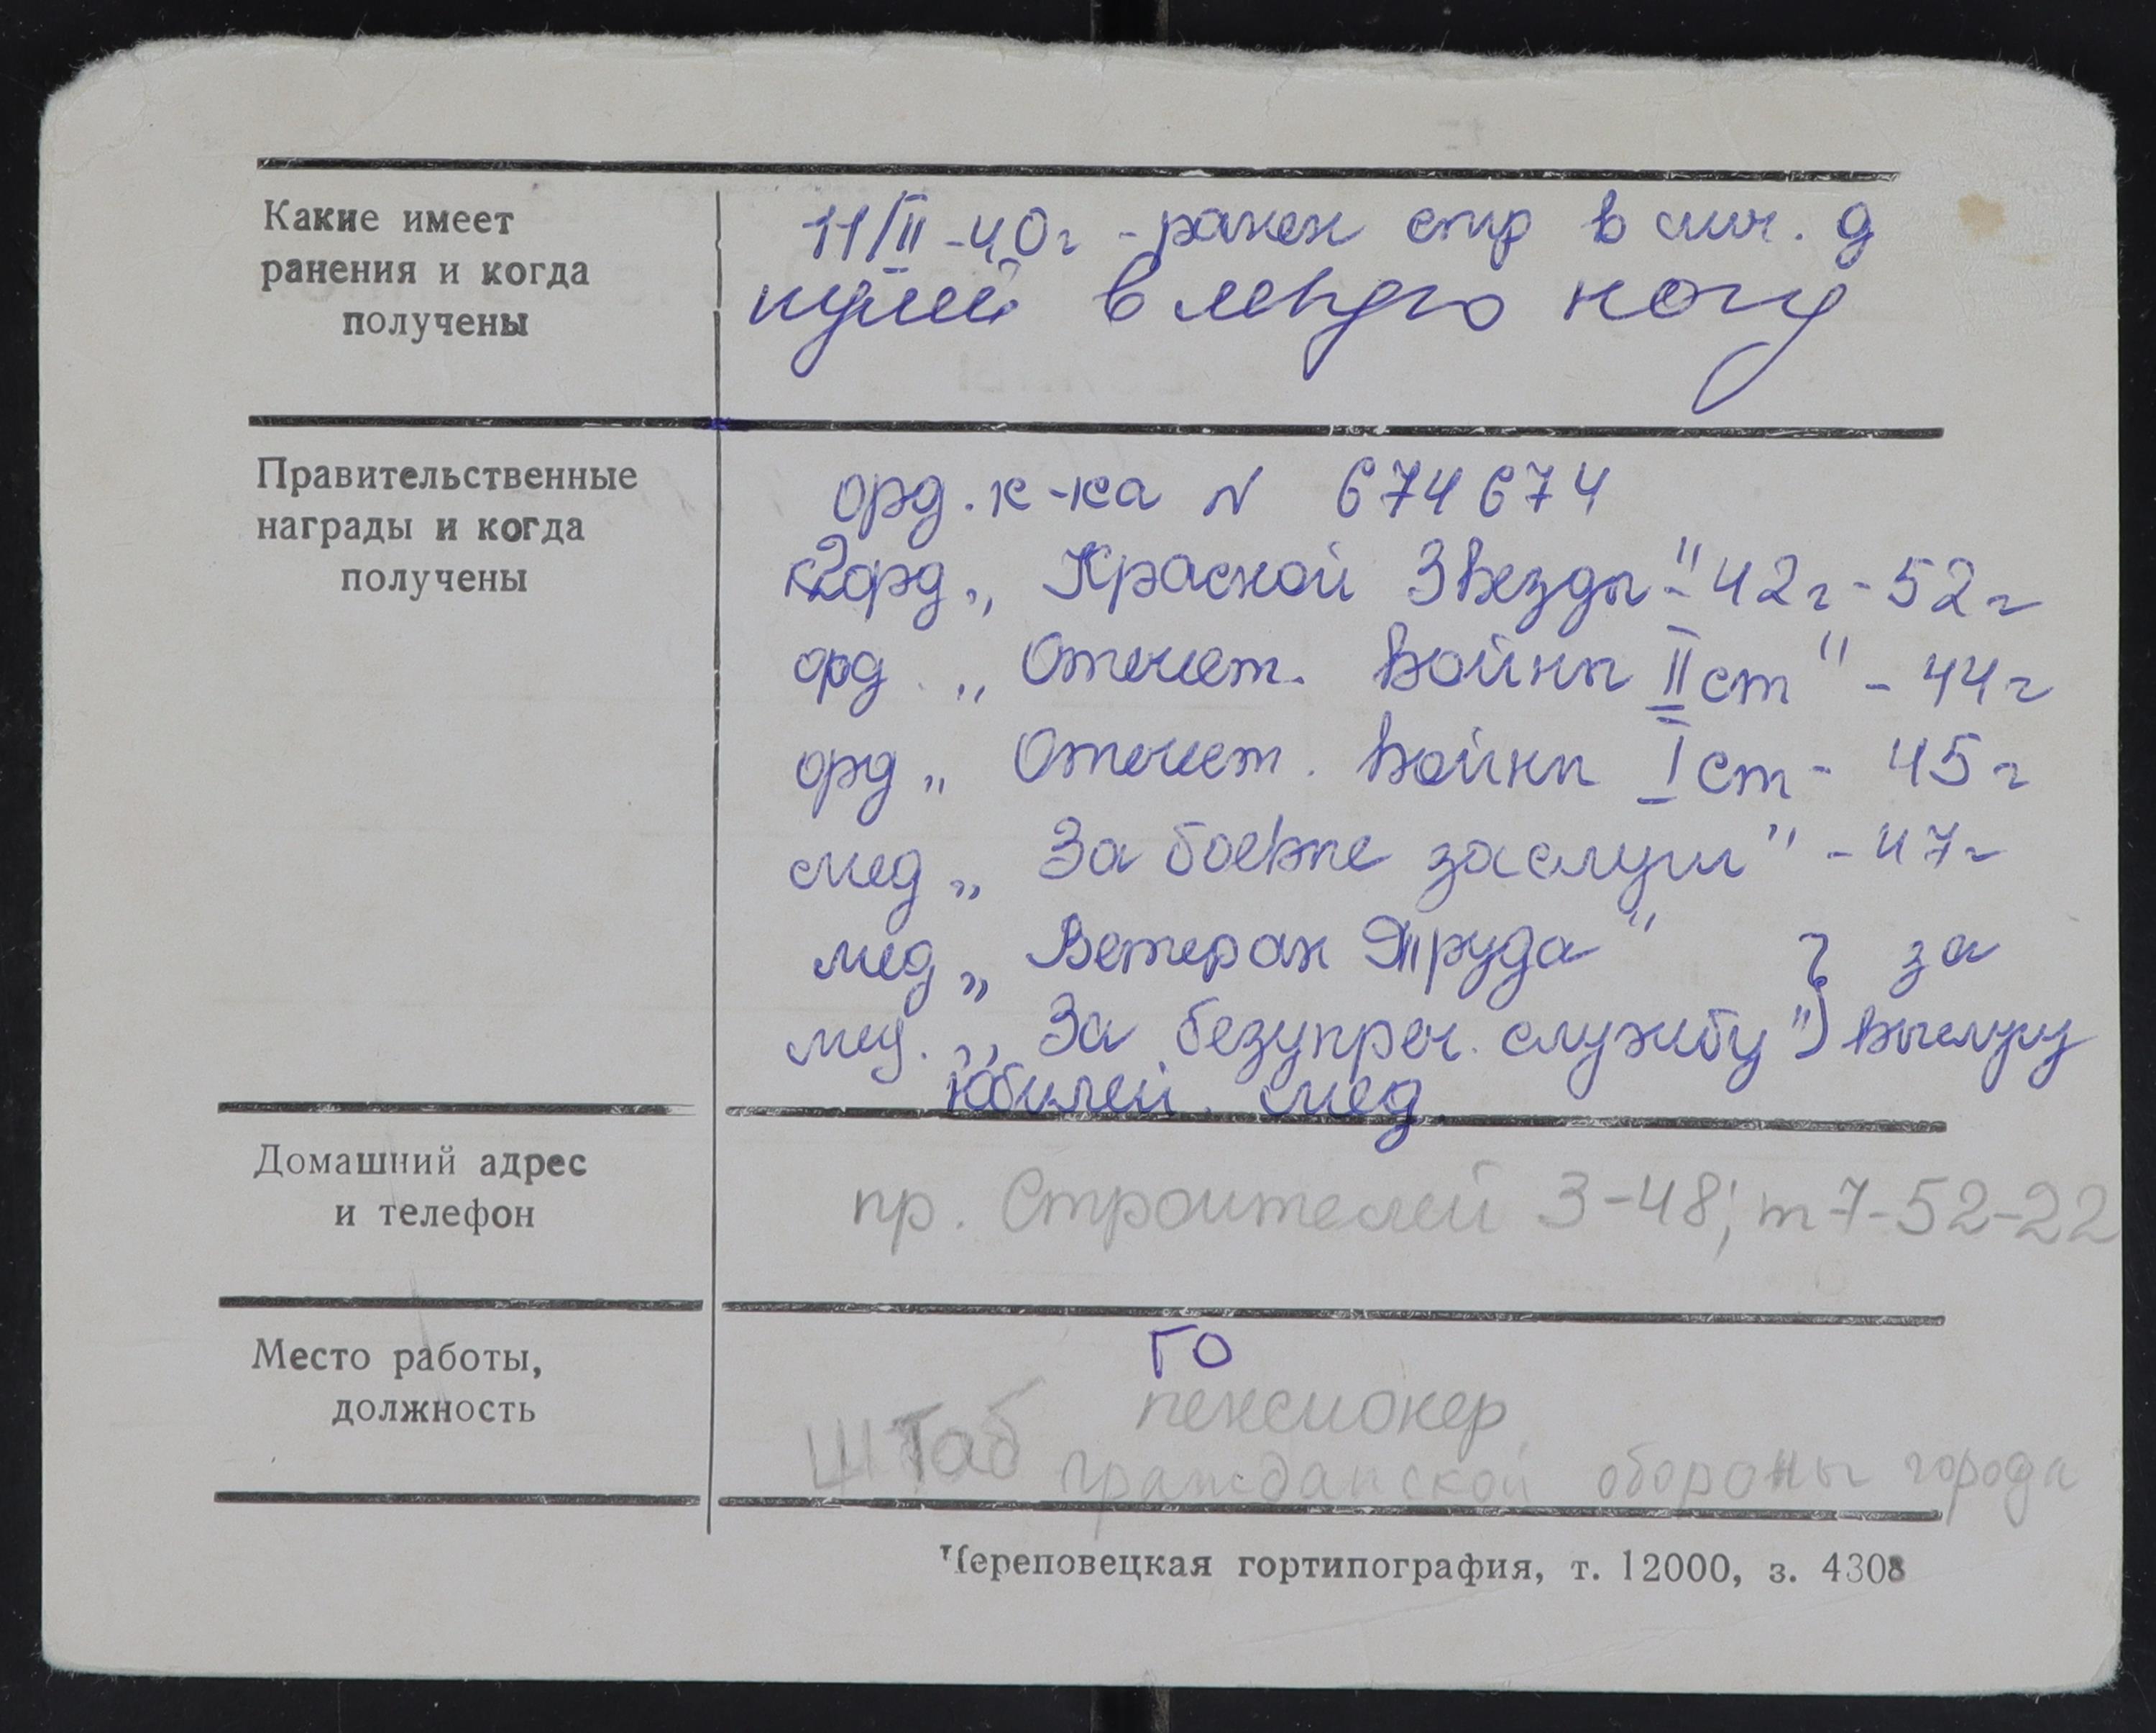 Какие имеет
ранения и когда
получены
11/II-40г - ранен стр в лич. д
пулей в левую ногу
Правительственные
награды и когда
получены
орд. к-ка N 674674
2орд. „Красной Звезды" - 42г - 52г
орд. „Отечест. Войны II ст" - 44г
орд „Отечест. Войны I ст - 45г
мед „За боевые заслуги" - 47г
мед „Ветеран Труда" } за
мед. „За безупреч. службу") выслугу
юбилей. мед.
Домашний адрес
и телефон
пр. Строителей 3-48; т 7-52-22
Место работы,
должность
ГО
пенсионер
Штаб гражданской обороны города
Череповецкая гортипография, т. 12000, з. 4308